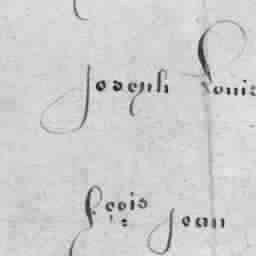 Joseph Louis
fcois Jean